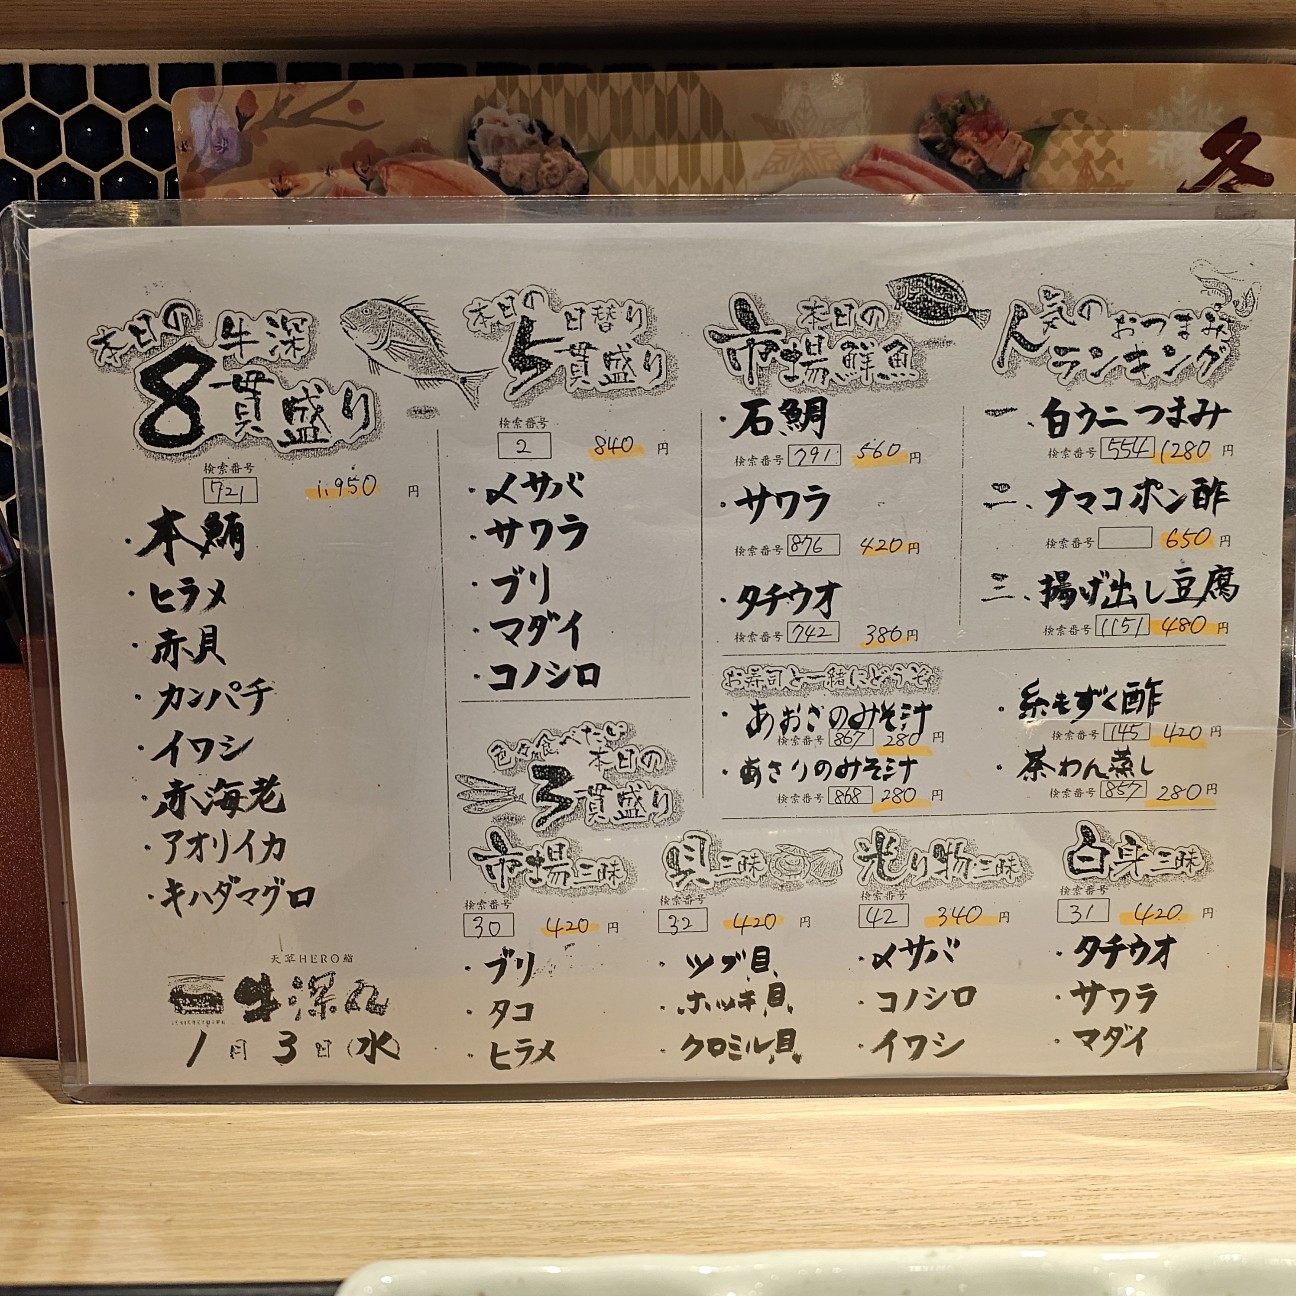 冬
本日の
牛深
8貫盛り
検索番号
721 1,950円
・本鮪
・ヒラメ
・赤貝
・カンパチ
・イワシ
・赤海老
・アオリイカ
・キハダマグロ
天草HERO鮨
牛深丸
1月3日(水)
本日の日替り
5貫盛り
検索番号
2 840円
・〆サバ
・サワラ
・ブリ
・マダイ
・コノシロ
本日の
市場鮮魚
・石鯛
検索番号 791 560円
・サワラ
検索番号 876 420円
・タチウオ
検索番号 742 380円
人気のおつまみ
ランキング
一、白ウニつまみ
検索番号 554 1280円
二、ナマコポン酢
検索番号 650円
三、揚げ出し豆腐
検索番号 1151 480円
お寿司と一緒にどうぞ
・あおさのみそ汁
検索番号 867 280円
・あさりのみそ汁
検索番号 868 280円
・糸もずく酢
検索番号 145 420円
・茶わん蒸し
検索番号 857 280円
色々食べたい
本日の
3貫盛り
市場三昧
検索番号
30 420円
・ブリ
・タコ
・ヒラメ
貝三昧
検索番号
32 420円
・ツブ貝
・ホッキ貝
・クロミル貝
光り物三昧
検索番号
42 340円
・〆サバ
・コノシロ
・イワシ
白身三昧
検索番号
31 420円
・タチウオ
・サワラ
・マダイ